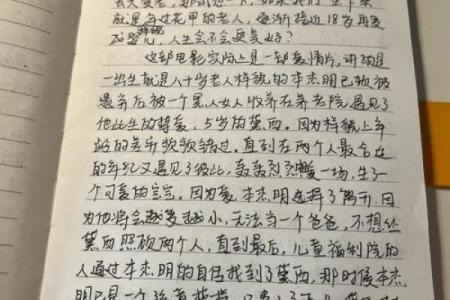 就是年过花甲的老人,逐渐接近18岁再变
成婴儿,人生会不会更美好?
这部电影实际上是一部爱情片,讲的是
一出生就是八十岁老人样貌的本杰明巴顿被
最弃后被一个黑人女人收养在养老院遇见了
他此生的挚爱,5岁的黛西。因为样貌上年
龄的差所频频错过。直到在两个人最合适
的年纪又遇见了彼此,轰轰烈烈 一场,生了一
个可爱的宝宝。因为爱,本杰明选择了离开,因
为他将会越变越小,无法当一个爸爸,不想让
黛西照顾两个人,直到最后,儿童福利院的
人通过本杰明的日记找到了黛西,那时候本杰
明已是一个孩童模样